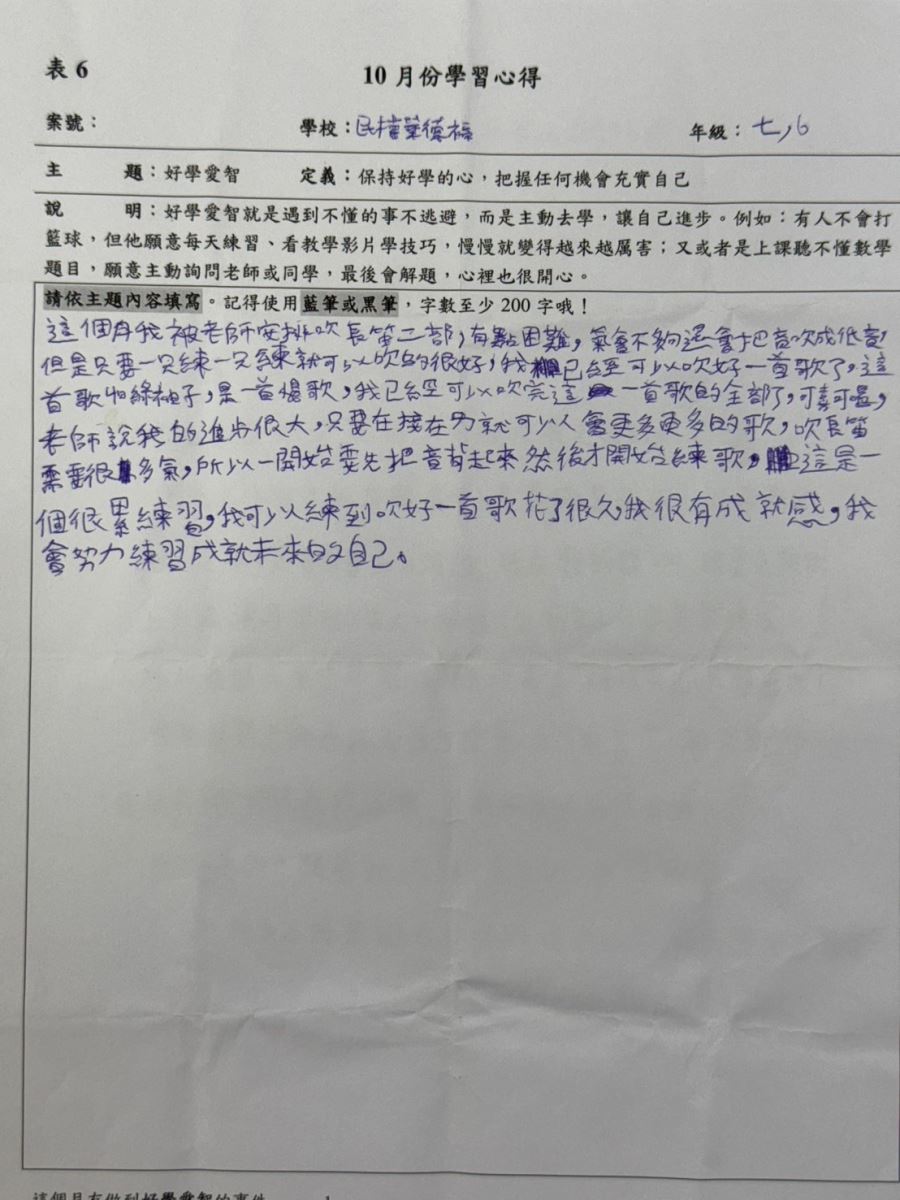 表 6
10 月份學習心得
案號：
學校：民權
年級：七,6
主　　題：好學愛智　　定義：保持好學的心，把握任何機會充實自己
說　　明：好學愛智就是遇到不懂的事不逃避，而是主動去學，讓自己進步。例如：有人不會打
籃球，但他願意每天練習、看教學影片學技巧，慢慢就變得越來越厲害；又或者是上課聽不懂數學
題目，願意主動詢問老師或同學，最後會解題，心裡也很開心。
請依主題內容填寫。記得使用藍筆或黑筆，字數至少 200 字哦！
這個月我被老師安排吹長笛二部，有點困難，氣會不夠還會把音吹成低音，
但是只要一只練一只練就可以吹的很好，我已經可以吹好一首歌了，這
首歌叫綠袖子，是一首慢歌，我已經可以吹完這一首歌的全部了，可喜可
老師說我的進步很大，只要在接在力就可以會更多更多的歌，吹長笛
需要很多氣，所以一開始要先把音背起來然後才開始練歌，這是一
個很累練習，我可以練到吹好一首歌花了很久，我很有成就感，我
會努力練習成就未來的自己。
這個月有做到好學愛智的事件